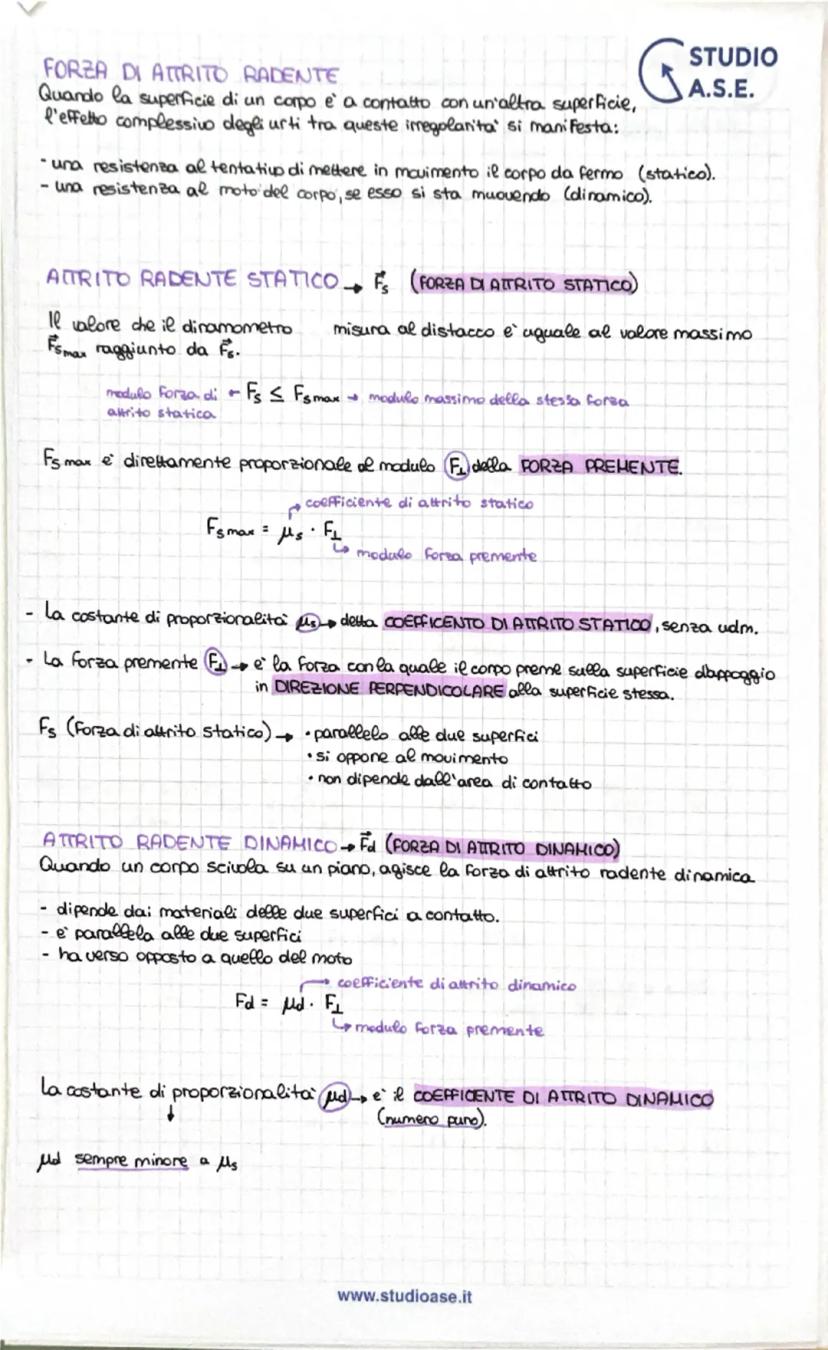 STUDIO
A.S.E.
FORZA DI ATTRITO RADENTE
Quando la superficie di un corpo e' a contatto con un'altra superficie,
l'effetto complessivo degli urti tra queste irregolarita' si manifesta:
- una resistenza al tentativo di mettere in movimento il corpo da fermo (statico).
- una resistenza al moto del corpo, se esso si sta muovendo (dinamico).
ATTRITO RADENTE STATICO → F⃗s (FORZA DI ATTRITO STATICO)
Il valore che il dinamometro misura al distacco e' uguale al valore massimo
F⃗s max raggiunto da F⃗s.
modulo forza di ← Fs ≤ Fs max → modulo massimo della stessa forza
attrito statica
Fs max e' direttamente proporzionale al modulo F⊥ della FORZA PREMENTE.
coefficiente di attrito statico
Fs max = μs · F⊥
modulo forza premente
- La costante di proporzionalita' μs → detta COEFFICENTO DI ATTRITO STATICO, senza udm.
- La forza premente F⊥ → e' la forza con la quale il corpo preme sulla superficie d'appoggio
in DIREZIONE PERPENDICOLARE alla superficie stessa.
Fs (forza di attrito statico) → • parallelo alle due superfici
• si oppone al movimento
• non dipende dall'area di contatto
ATTRITO RADENTE DINAMICO → F⃗d (FORZA DI ATTRITO DINAMICO)
Quando un corpo scivola su un piano, agisce la forza di attrito radente dinamica
- dipende dai materiali delle due superfici a contatto.
- e' parallela alle due superfici
- ha verso opposto a quello del moto
coefficiente di attrito dinamico
Fd = μd · F⊥
modulo forza premente
La costante di proporzionalita' μd → e' il COEFFICENTE DI ATTRITO DINAMICO
↓ (numero puro).
μd sempre minore a μs
www.studioase.it